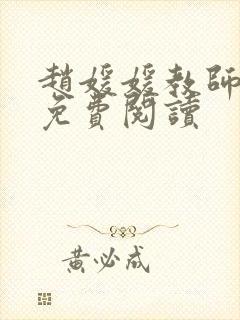 趙媛媛教師
免費閱讀
黃必成